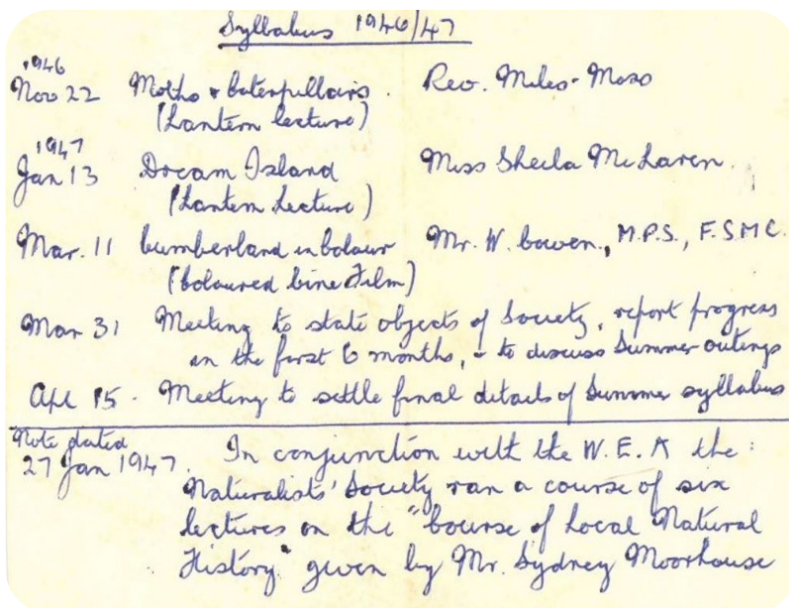 Syllabus 1946/47
1946
Nov 22 Moths & Caterpillars. Rev. Miles-Moss
(Lantern lecture)
1947
Jan 13 Dream Island Miss Sheila McLaren.
(Lantern Lecture)
Mar. 11 Cumberland in Colour Mr. W. Cowen., M.P.S., F.S.M.C.
(Coloured Cine Film)
Mar 31 Meeting to state objects of Society, report progress
in the first 6 months, & to discuss Summer outings
Apl 15. Meeting to settle final details of Summer syllabus
Note dated
27 Jan 1947. In conjunction with the W.E.A the
Naturalists' Society ran a course of six
lectures on the "Course of Local Natural
History" given by Mr. Sydney Moorhouse